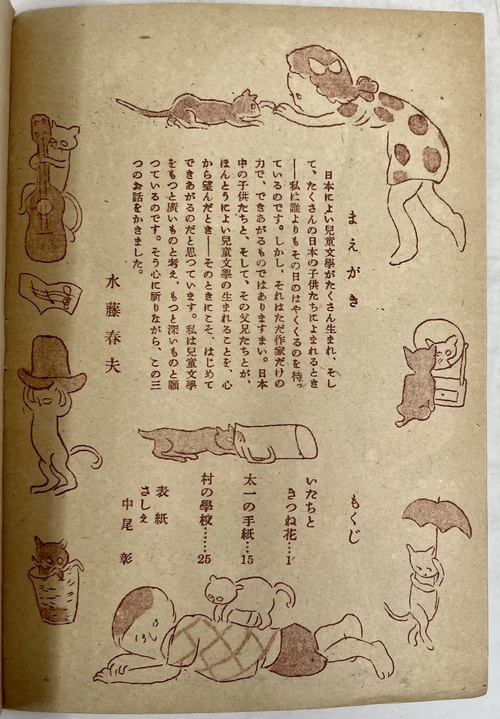 まえがき
日本によい兒童文學がたくさん生まれ、そし
て、たくさんの日本の子供たちによまれるとき
――私は誰よりもその日のはやくくるのを待っ
ているのです。しかし、それはただ作家だけの
力で、できあがるものではありますまい。日本
中の子供たちと、そして、その父兄たちとが、
ほんとうによい兒童文學の生まれることを、心
から望んだとき――そのときにこそ、はじめて
できあがるのだと思つています。私は兒童文學
をもつと廣いものと考え、もつと深いものと願
つているのです。そう心に祈りながら、この三
つのお話をかきました。
水藤春夫
もくじ
いたちと
きつね花…1
太一の手紙……15
村の學校………25
表紙
さしえ
中尾彰